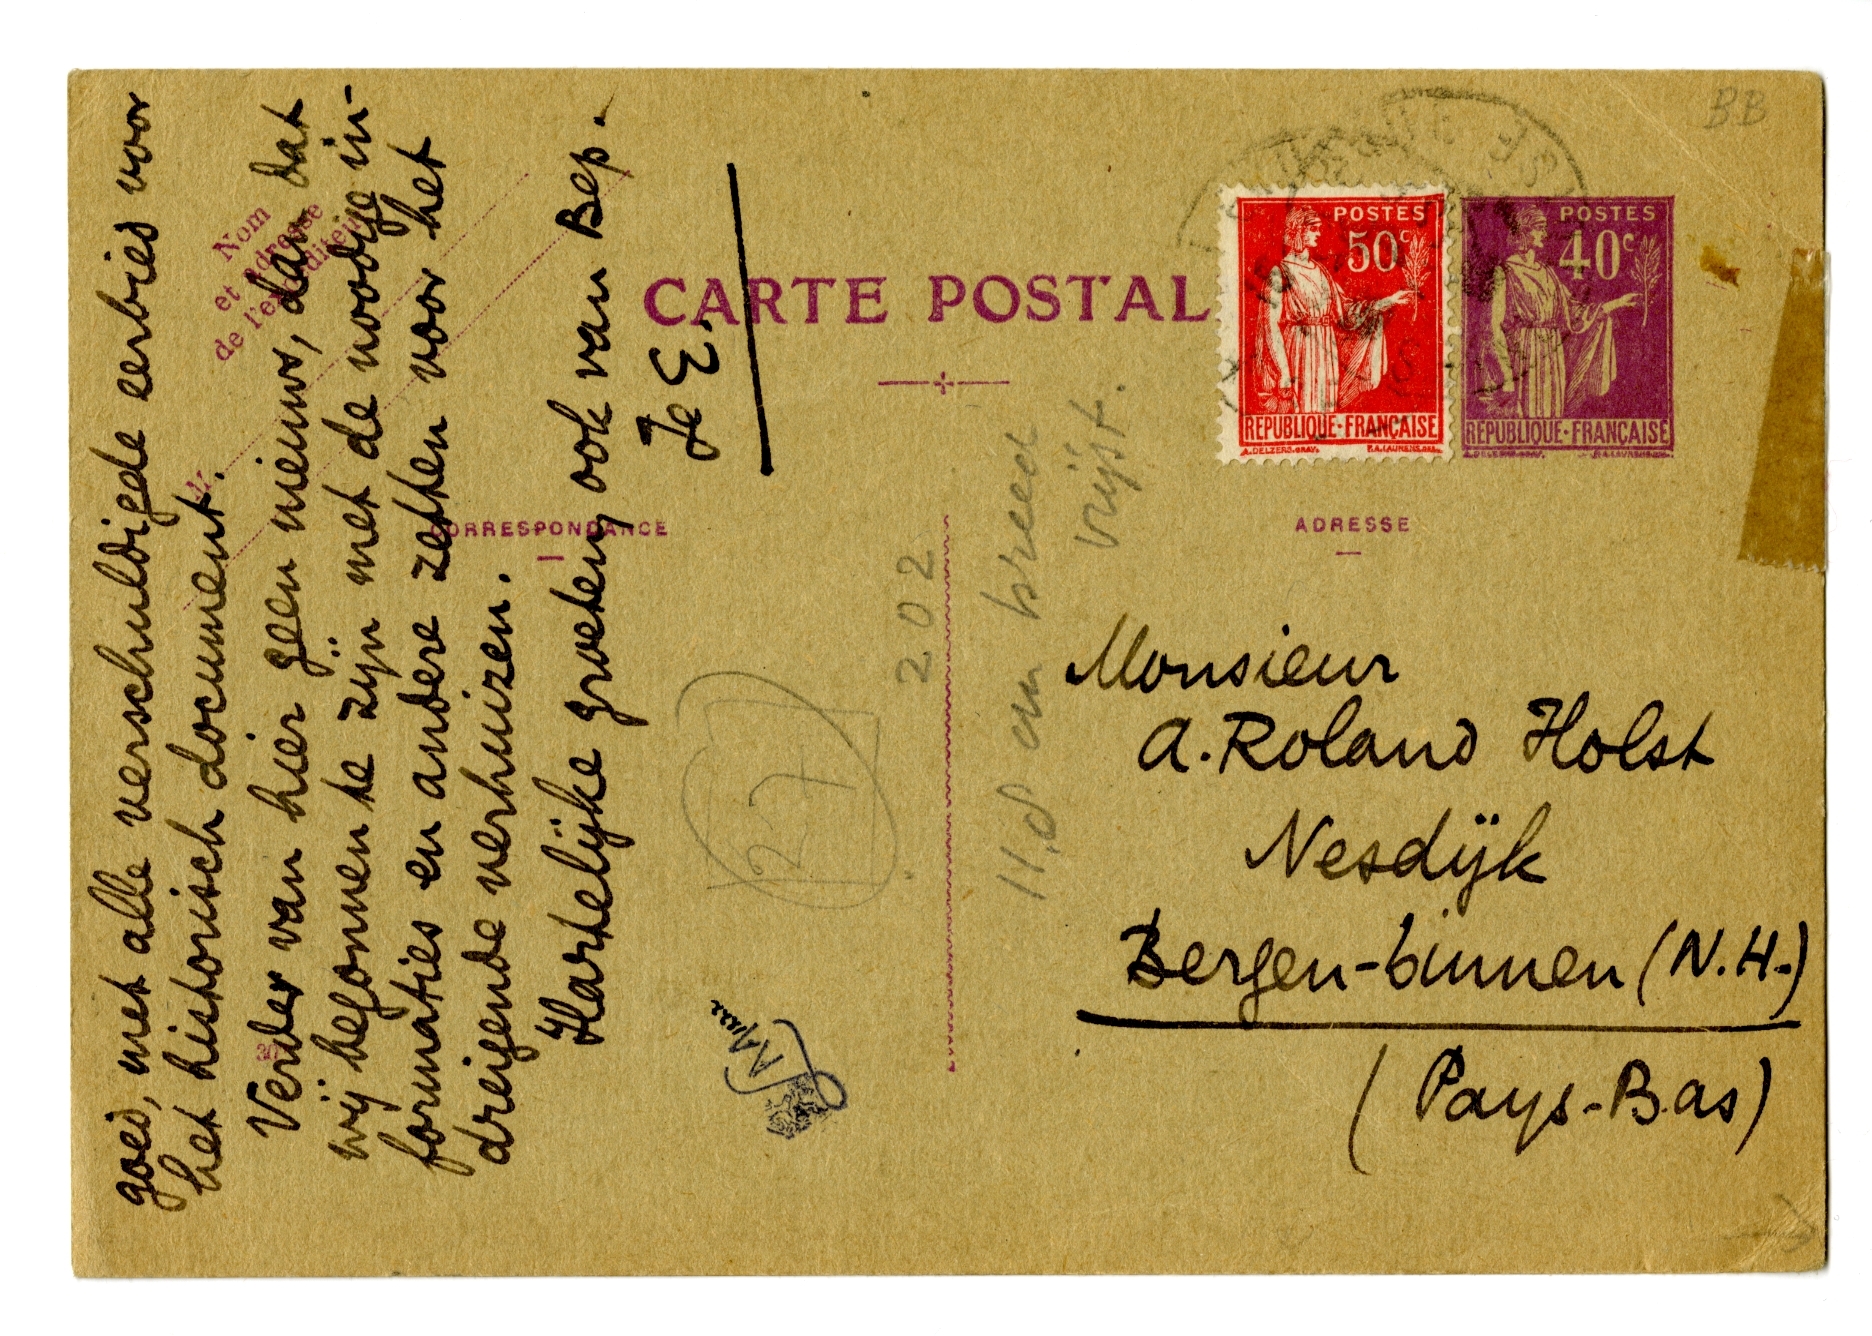 goed, met alle verschuldigde eerbied voor
het historisch document.
Verder van hier geen nieuws, dan dat
wij begonnen te zijn met de noodige in-
formaties en andere zetten voor het
dreigende verhuizen.
Hartelijke groeten, ook van Bep.
Je E.
Nom
et adresse
de l'expéditeur
CARTE POSTAL
CORRESPONDANCE
ADRESSE
POSTES
50c
REPUBLIQUE·FRANÇAISE
POSTES
40c
REPUBLIQUE·FRANÇAISE
BB
202
11,8 cm breed
27
Monsieur
A. Roland Holst
Nesdijk
Bergen-binnen (N.H.)
(Pays-Bas)